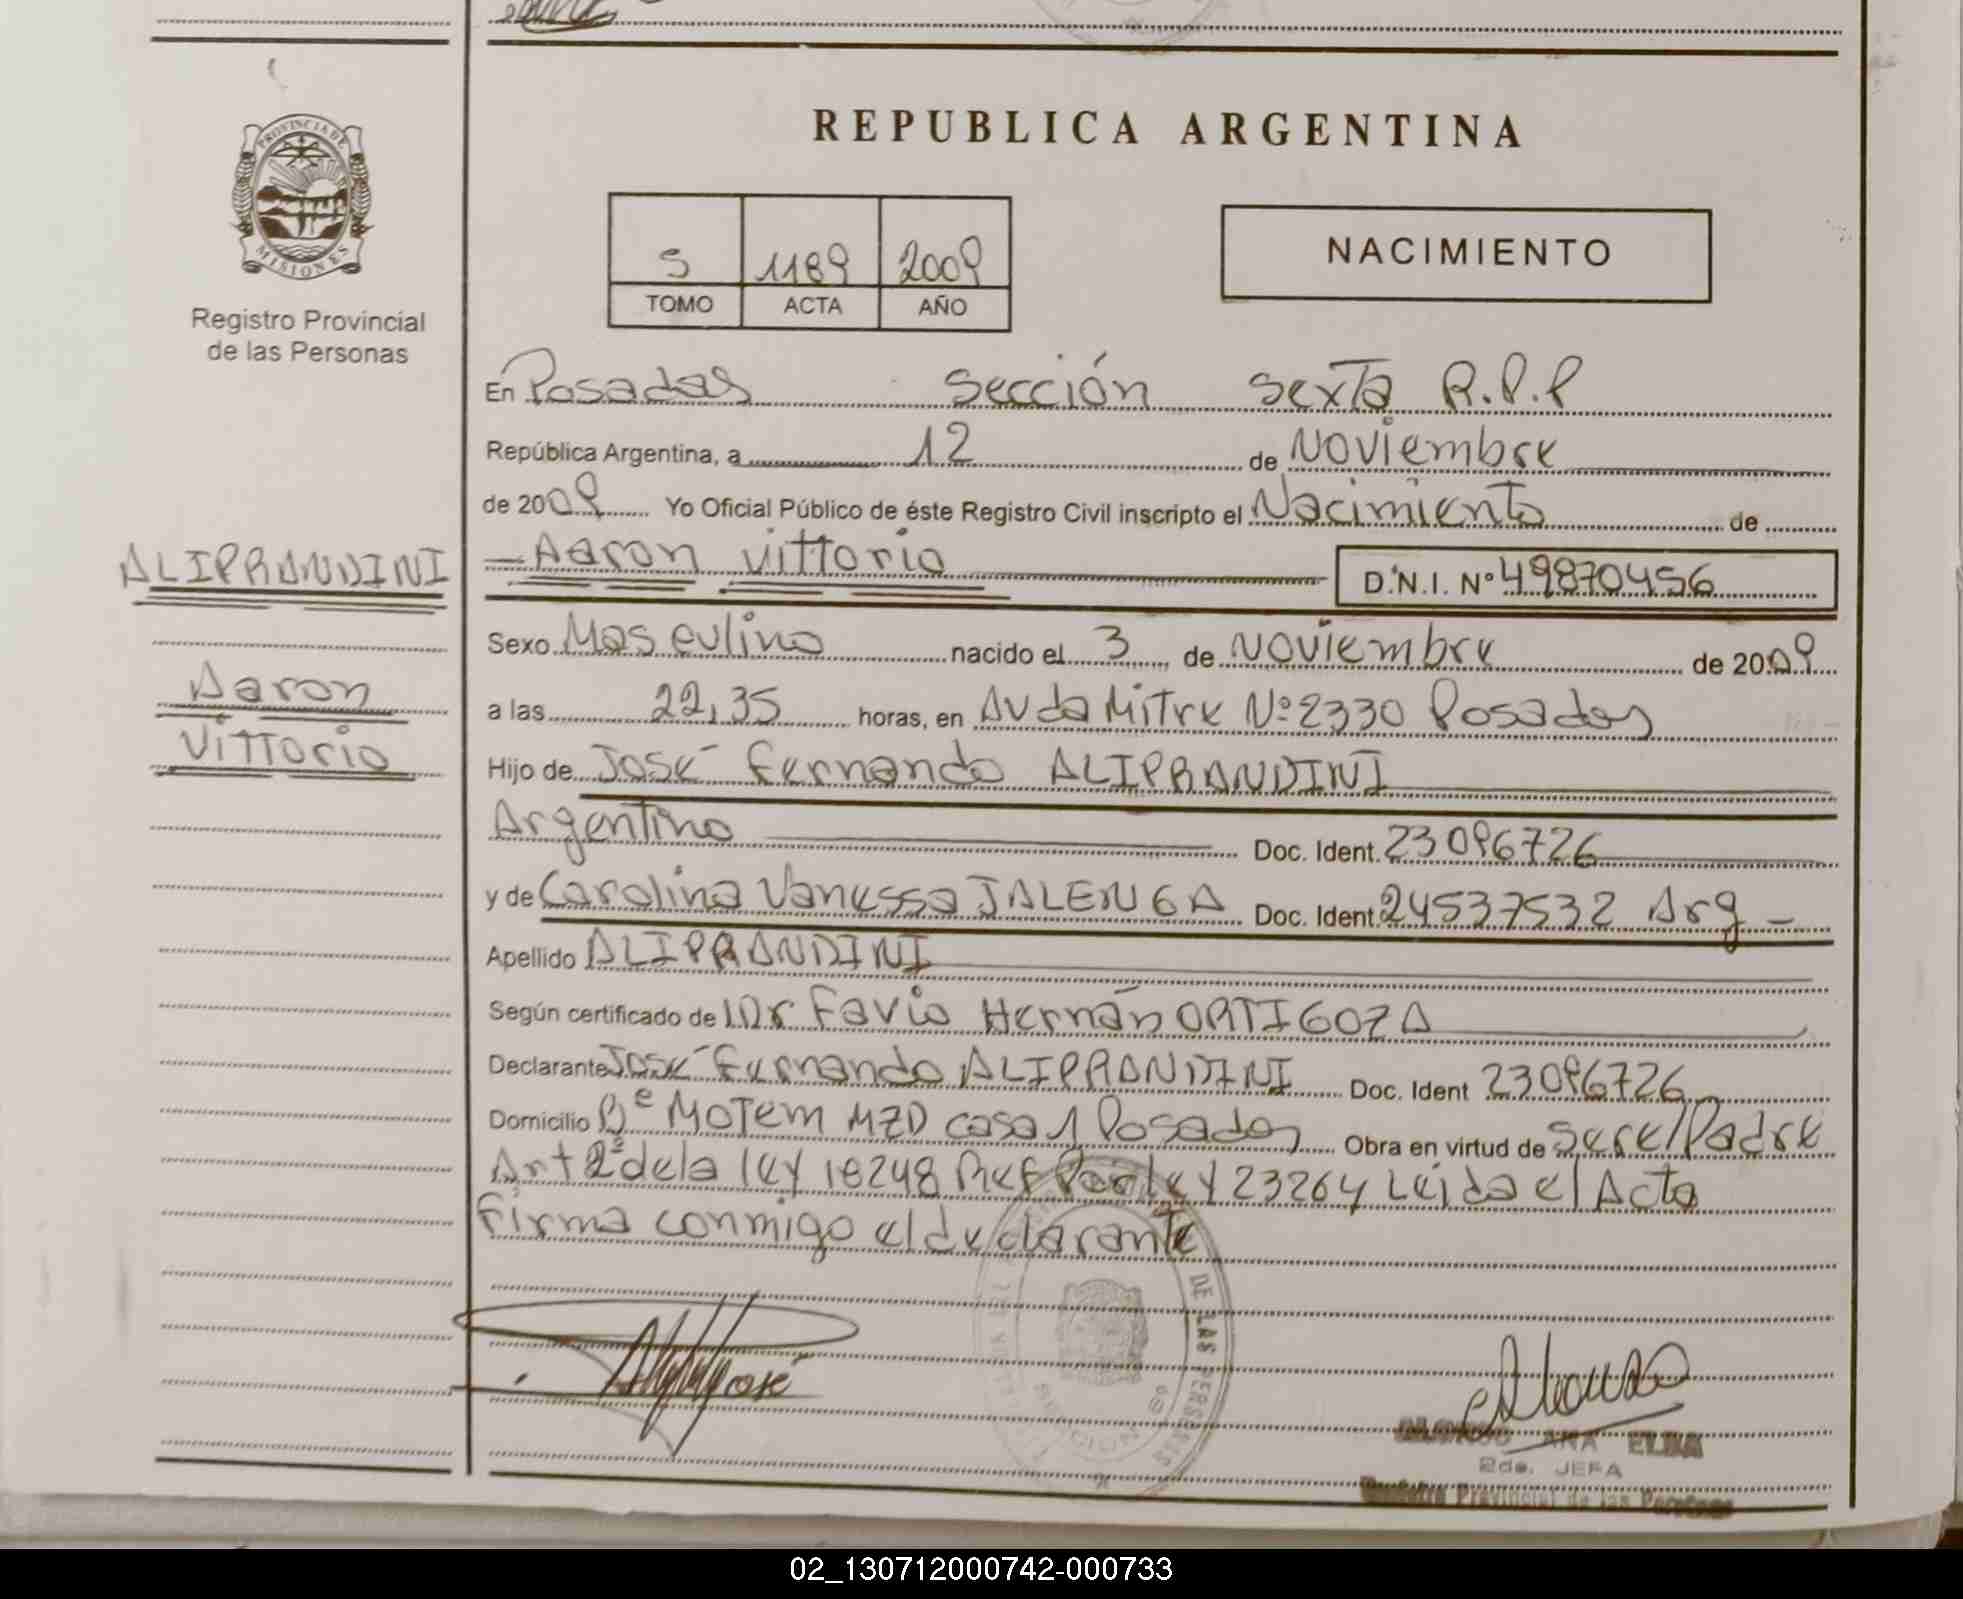 REPUBLICA ARGENTINA
PROVINCIA DE
MISIONES
Registro Provincial
de las Personas
5 1189 2009
TOMO ACTA AÑO
NACIMIENTO
En Posadas Sección Sexta R.P.P
República Argentina, a 12 de Noviembre
de 2009 Yo Oficial Público de éste Registro Civil inscripto el Nacimiento de
ALIPRANDINI
Aaron
Vittorio
Aaron Vittorio D.N.I. Nº 49870456
Sexo Masculino nacido el 3 de Noviembre de 2009
a las 22,35 horas, en Avda Mitre Nº 2330 Posadas
Hijo de José Fernando ALIPRANDINI
Argentino Doc. Ident. 23096726
y de Carolina Vanessa JALENGA Doc. Ident. 24537532 Arg
Apellido ALIPRANDINI
Según certificado de Dr Favio Hernán ORTIGOZA
Declarante José Fernando ALIPRANDINI Doc. Ident 23096726
Domicilio Bº MOTEM MZD casa 1 Posadas Obra en virtud de Ser el Padre
Art 2º de la ley 18248 Ref Por ley 23264 Leida el Acta
Firma conmigo el declarante
José
DE LAS PERSONAS
SECCION 6º
ALONSO ANA ELBA
2da. JEFA
Registro Provincial de las Personas
02_130712000742-000733